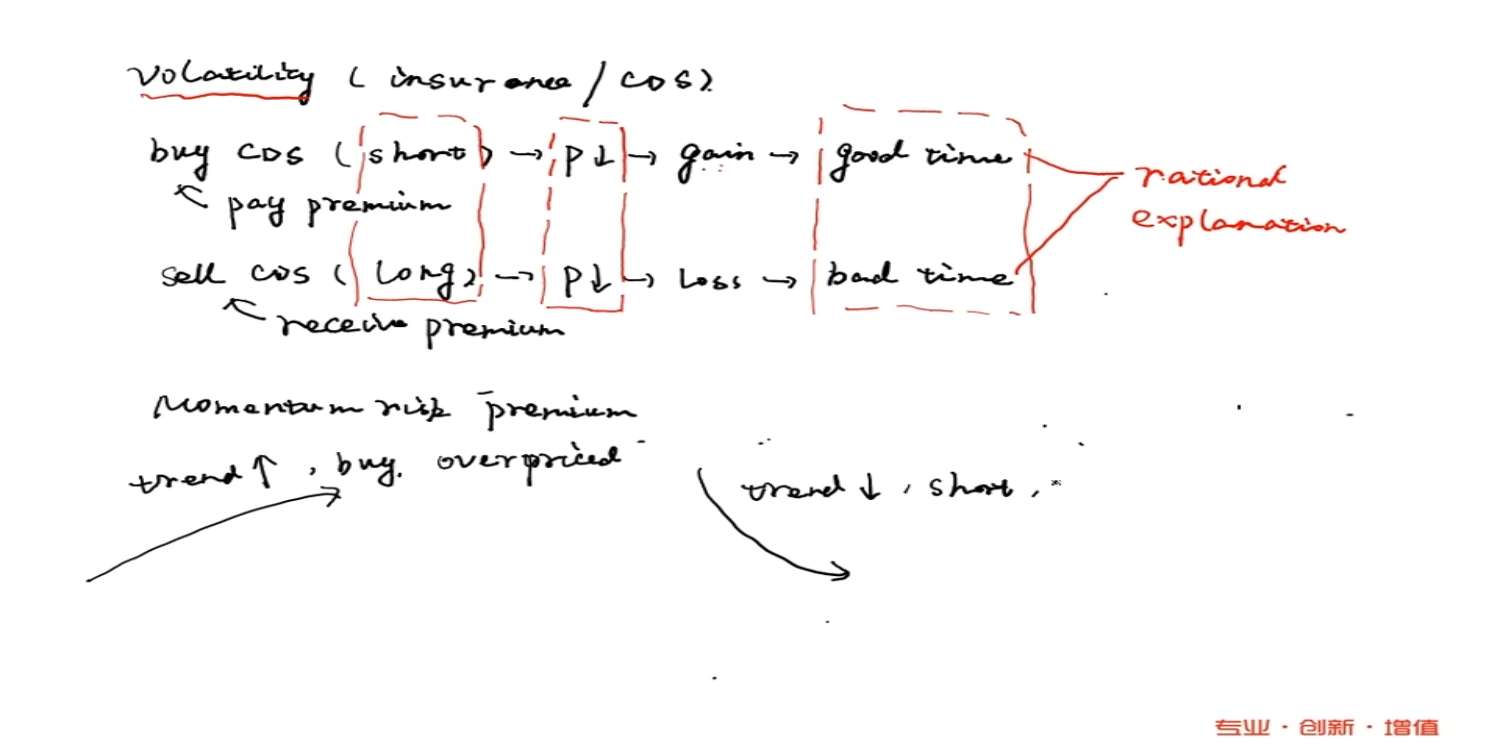 Volatility (insurance / CDS)
buy CDS (short) → P↓ → gain → good time
pay premium
rational
explanation
sell CDS (long) → P↓ → Loss → bad time
receive premium
Momentum risk premium
trend↑, buy. overpriced
trend↓, short,
专业·创新·增值